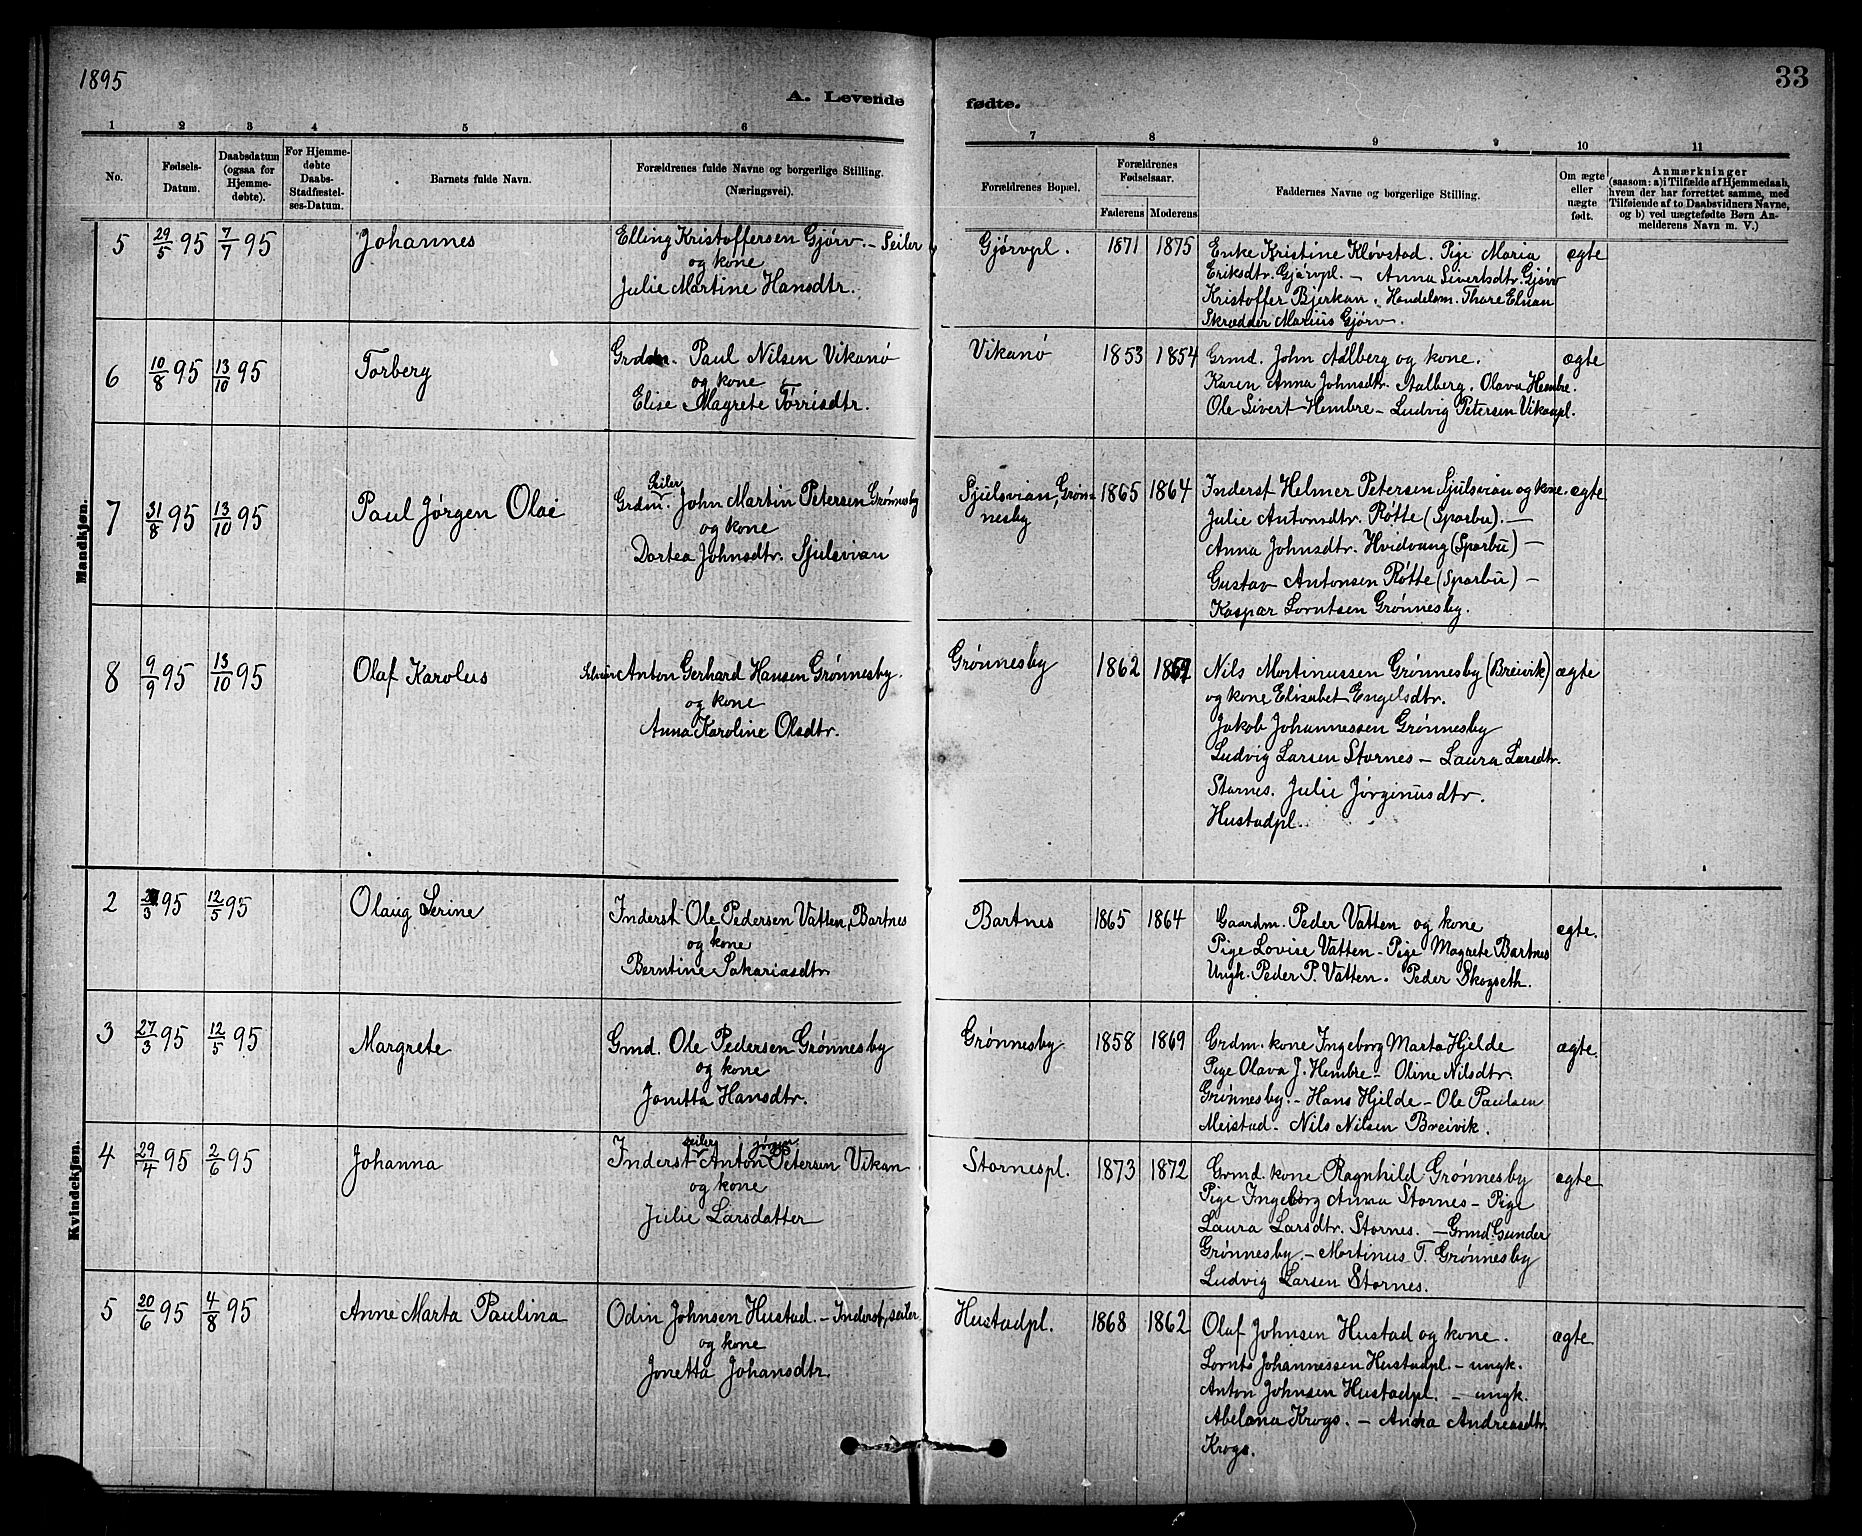 1895
33
A. Levende fødte.
1 2 3 4 5 6 7 8 9 9 10 11
No.
Fødsels-
Datum.
Daabsdatum
(ogsaa for
Hjemme-
døbte).
For Hjemme-
døbte
Daabs-
Stadfæstel-
ses-Datum.
Barnets fulde Navn.
Forældrenes fulde Navne og borgerlige Stilling.
(Næringsvei).
Forældrenes Bopæl.
Forældrenes
Fødselsaar.
Faderens Moderens
Faddernes Navne og borgerlige Stilling.
Om ægte
eller
uægte
født.
Anmærkninger
(saasom: a) i Tilfælde af Hjemmedaab,
hvem der har forrettet samme, med
Tilføiende af to Daabsvidners Navne,
og b) ved uægtefødte Børn An-
melderens Navn m. V.)
Mandkjøn.
5 29/5 95 7/7 95 Johannes
Elling Kristoffersen Gjørv. - Seiler
og kone
Julie Martine Hansdtr.
Gjørvpl. 1871 1875
Enke Kristine Kløvstad. Pige Maria
Eriksdtr. Gjørvpl. - Anna Sivertsdtr. Gjørv
Kristoffer Bjerkan. Handelsm. Thore Elnan
Skrædder Marius Gjørv.
ægte
6 10/8 95 13/10 95 Torberg
Grdm. Paul Nilsen Vikanø
og kone
Elise Magrete Torrisdtr.
Vikanø 1853 1854
Grmd. John Aalberg og kone.
Karen Anna Johnsdtr. Aalberg. Olava Hembre.
Ole Sivert Hembre - Ludvig Petersen Vikanpl.
ægte
7 31/8 95 13/10 95 Paul Jørgen Olai
Seiler
Grdm. John Martin Petersen Grønnesby
og kone
Dortea Johnsdtr. Sjulsvian
Sjulsvian, Grøn-
nesby
1865 1864
Inderst Helmer Petersen Sjulsvian og kone.
Julie Antonsdtr. Røtte (Sparbu). -
Anna Johnsdtr. Hvidvang (Sparbu) -
Gustav Antonsen Røtte (Sparbu) -
Kaspar Lorntsen Grønnesby.
ægte
8 9/9 95 13/10 95 Olaf Karolus
Anton Gerhard Hansen Grønnesby.
og kone
Anna Karoline Olsdtr.
Grønnesby 1862
Nils Mortinussen Grønnesby (Breivik)
og kone Elisabet Engelsdtr.
Jakob Johannessen Grønnesby
Ludvig Larsen Stornes - Laura Larsdtr.
Stornes. Julie Jørginusdtr.
Hustadpl.
ægte
Kvindekjøn.
2 /3 95 12/5 95 Olaug Serine
Inderst Ole Pedersen Vatten, Bartnes
og kone
Berntine Sakariasdtr
Bartnes 1865 1864
Gaardm. Peder Vatten og kone
Pige Lovise Vatten - Pige Magrete Bartnes
Ungk. Peder P. Vatten. Peder Skogseth.
ægte.
3 27/3 95 12/5 95 Margrete
Gmd. Ole Pedersen Grønnesby
og kone
Jonetta Hansdtr.
Grønnesby 1858 1869
Grdm. kone Ingeborg Marta Hjelde
Pige Olava J. Hembre - Oline Nilsdtr.
Grønnesby. - Hans Hjelde - Ole Paulsen
Meistad - Nils Nilsen Breivik.
ægte.
4 29/4 95 2/6 95 Johanna
seiler Jørgen
Inderst Anton Petersen Vikan
og kone
Julie Larsdatter
Stornespl. 1873 1872
Grmd. kone Ragnhild Grønnesby
Pige Ingeborg Anna Stornes - Pige
Laura Larsdtr. Stornes. - Grmd. Gunder
Grønnesby - Mortinus T. Grønnesby
Ludvig Larsen Stornes.
ægte
5 20/6 95 4/8 95 Anne Marta Paulina
Odin Johnsen Hustad. - Inderst, seiler
og kone
Jonetta Johansdtr
Hustadpl. 1868 1862
Olaf Johnsen Hustad og kone.
Lornts Johannessen Hustadpl. - ungk.
Anton Johnsen Hustadpl. - ungk.
Abelona Krogs. - Anna Andreasdtr.
Krogs.
ægte